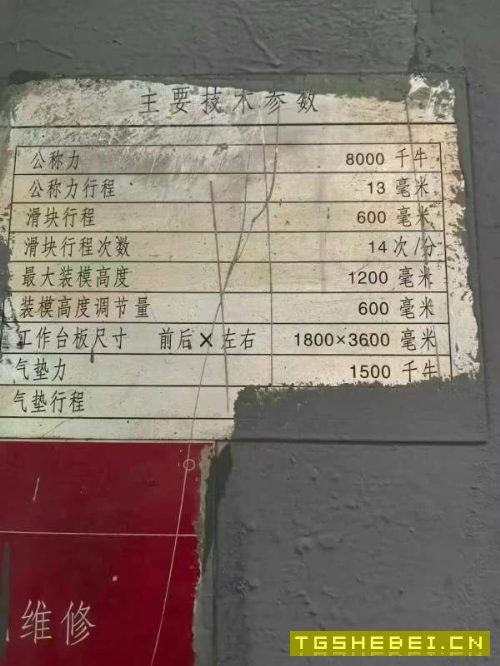 主要技术参数
公称力 8000 千牛
公称力行程 13 毫米
滑块行程 600 毫米
滑块行程次数 14 次/分
最大装模高度 1200 毫米
装模高度调节量 600 毫米
工作台板尺寸 前后×左右 1800×3600 毫米
气垫力 1500 千牛
气垫行程
维修
TGSHEBEI.CN